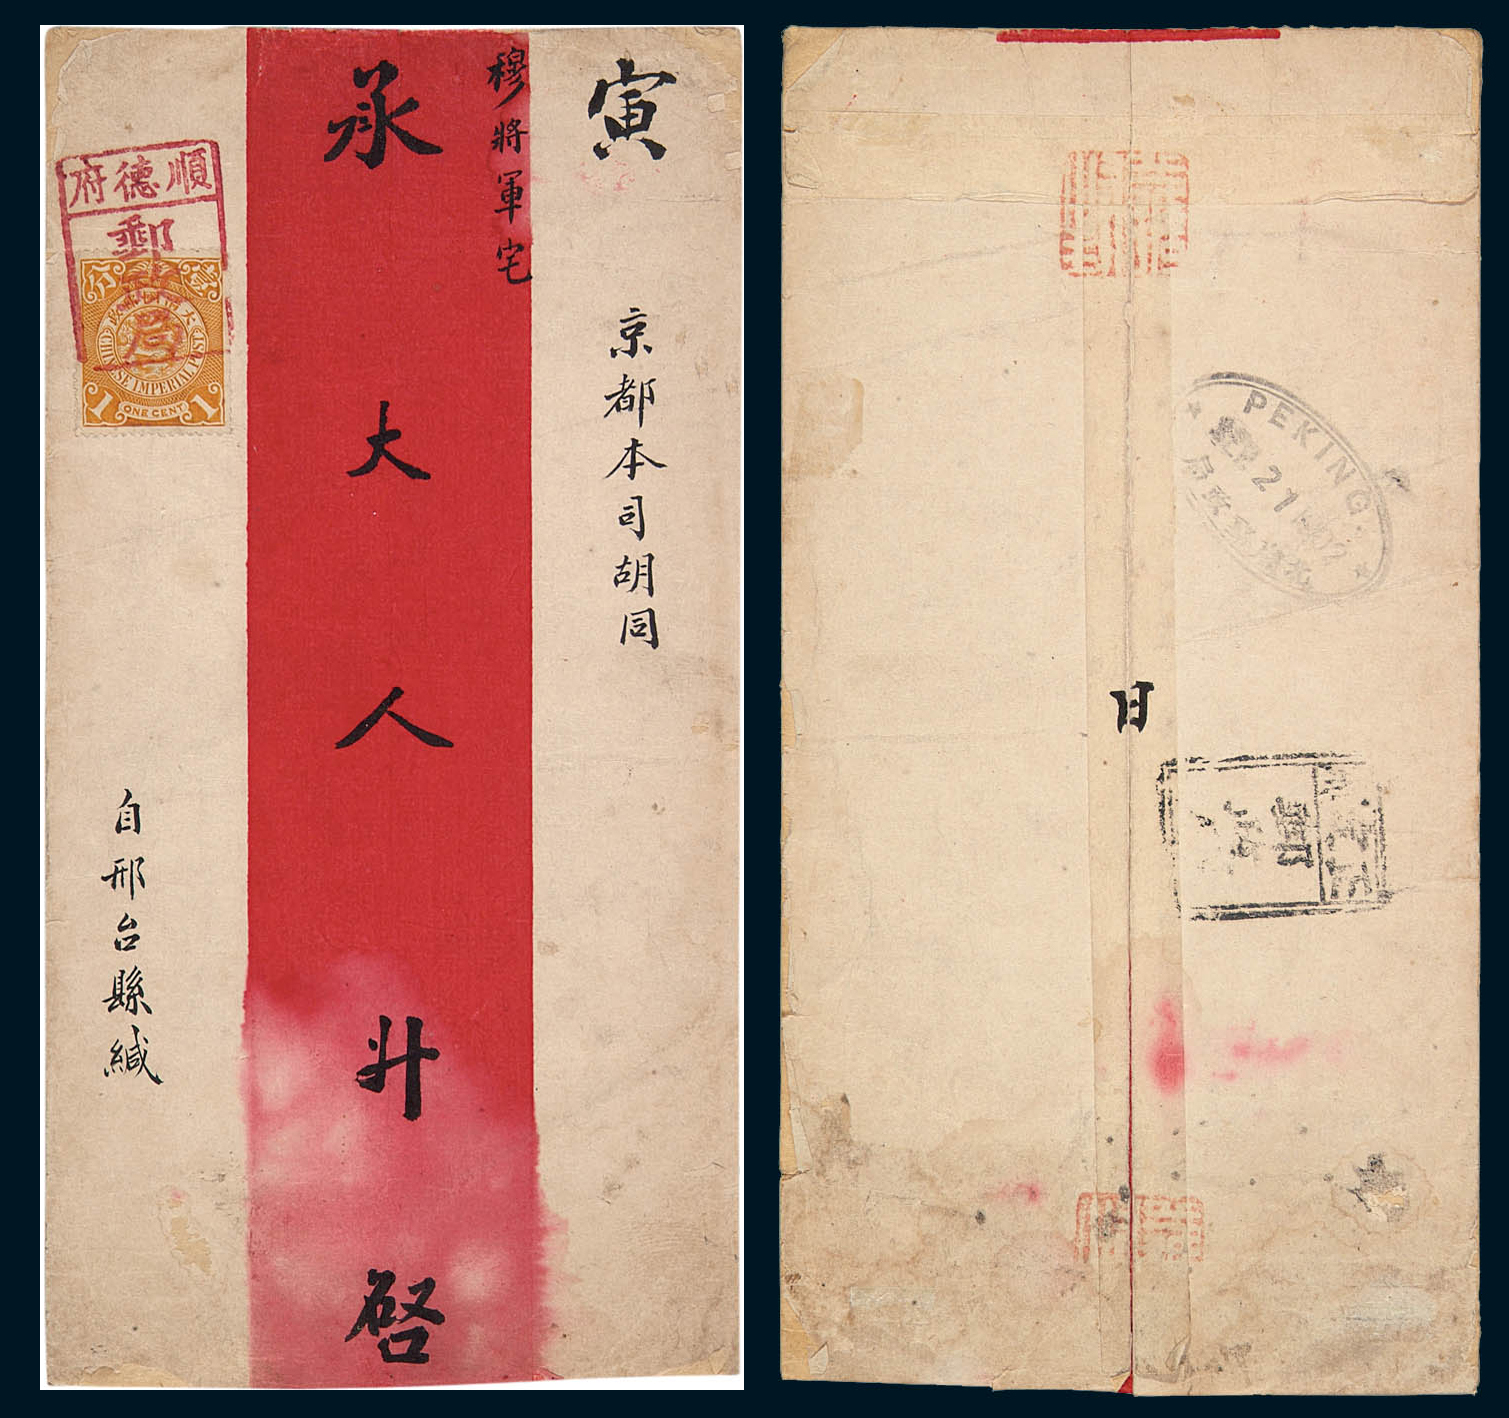 寅
京都本司胡同
穆將軍宅
承大人升啓
自邢台縣緘
順德府
郵政局
CHINESE IMPERIAL POST
1 ONE CENT 1
PEKING.
21
日